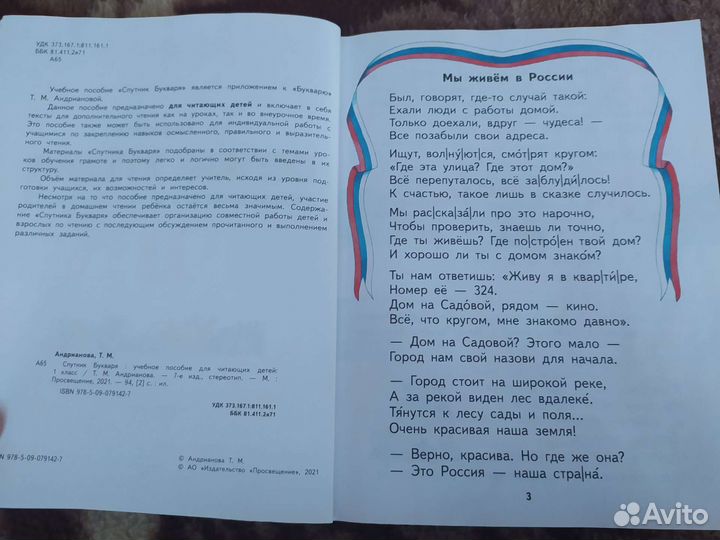 УДК 373.167.1:811.161.1
ББК 81.411.2я71
А65
Учебное пособие «Спутник Букваря» является приложением к «Букварю»
Т. М. Андриановой.
Данное пособие предназначено для читающих детей и включает в себя
тексты для дополнительного чтения как на уроках, так и во внеурочное время.
Это пособие также может быть использовано для индивидуальной работы с
учащимися по закреплению навыков осмысленного, правильного и выразитель-
ного чтения.
Материалы «Спутника Букваря» подобраны в соответствии с темами уро-
ков обучения грамоте и поэтому легко и логично могут быть введены в их
структуру.
Объём материала для чтения определяет учитель, исходя из уровня под-
готовки учащихся, их возможностей и интересов.
Несмотря на то что пособие предназначено для читающих детей, участие
родителей в домашнем чтении ребёнка остаётся весьма значимым. Содержа-
ние «Спутника Букваря» обеспечивает организацию совместной работы детей и
взрослых по чтению с последующим обсуждением прочитанного и выполнением
различных заданий.
Андрианова, Т. М.
А65 Спутник Букваря : учебное пособие для читающих детей:
1 класс / Т. М. Андрианова. — 7-е изд., стереотип. — М. :
Просвещение, 2021. — 94, [2] с. : ил.
ISBN 978-5-09-079142-7.
УДК 373.167.1:811.161.1
ББК 81.411.2я71
ISBN 978-5-09-079142-7
© Андрианова Т. М.
© АО «Издательство «Просвещение», 2021
Мы живём в России
Был, говорят, где-то случай такой:
Ехали люди с работы домой.
Только доехали, вдруг — чудеса! —
Все позабыли свои адреса.
Ищут, вол|ну́|ют|ся, смо́т|рят кругом:
«Где эта улица? Где этот дом?»
Всё перепуталось, всё за|блу|ди́|лось!
К счастью, такое лишь в сказке случилось.
Мы рас|ска|за́|ли про это нарочно,
Чтобы проверить, знаешь ли точно,
Где ты живёшь? Где по|стро́|ен твой дом?
И хорошо ли ты с домом знако́м?
Ты нам ответишь: «Живу я в квар|ти́|ре,
Номер её — 324.
Дом на Садо́вой, рядом — кино.
Всё, что кругом, мне знакомо давно».
— Дом на Садовой? Этого мало —
Город нам свой назови для начала.
— Город стоит на широкой реке,
А за рекой виден лес вдалеке́.
Тя́нутся к лесу сады и поля...
Очень красивая наша земля!
— Верно, красива. Но где же она?
— Это Россия — наша стра|на́.
3
Avito